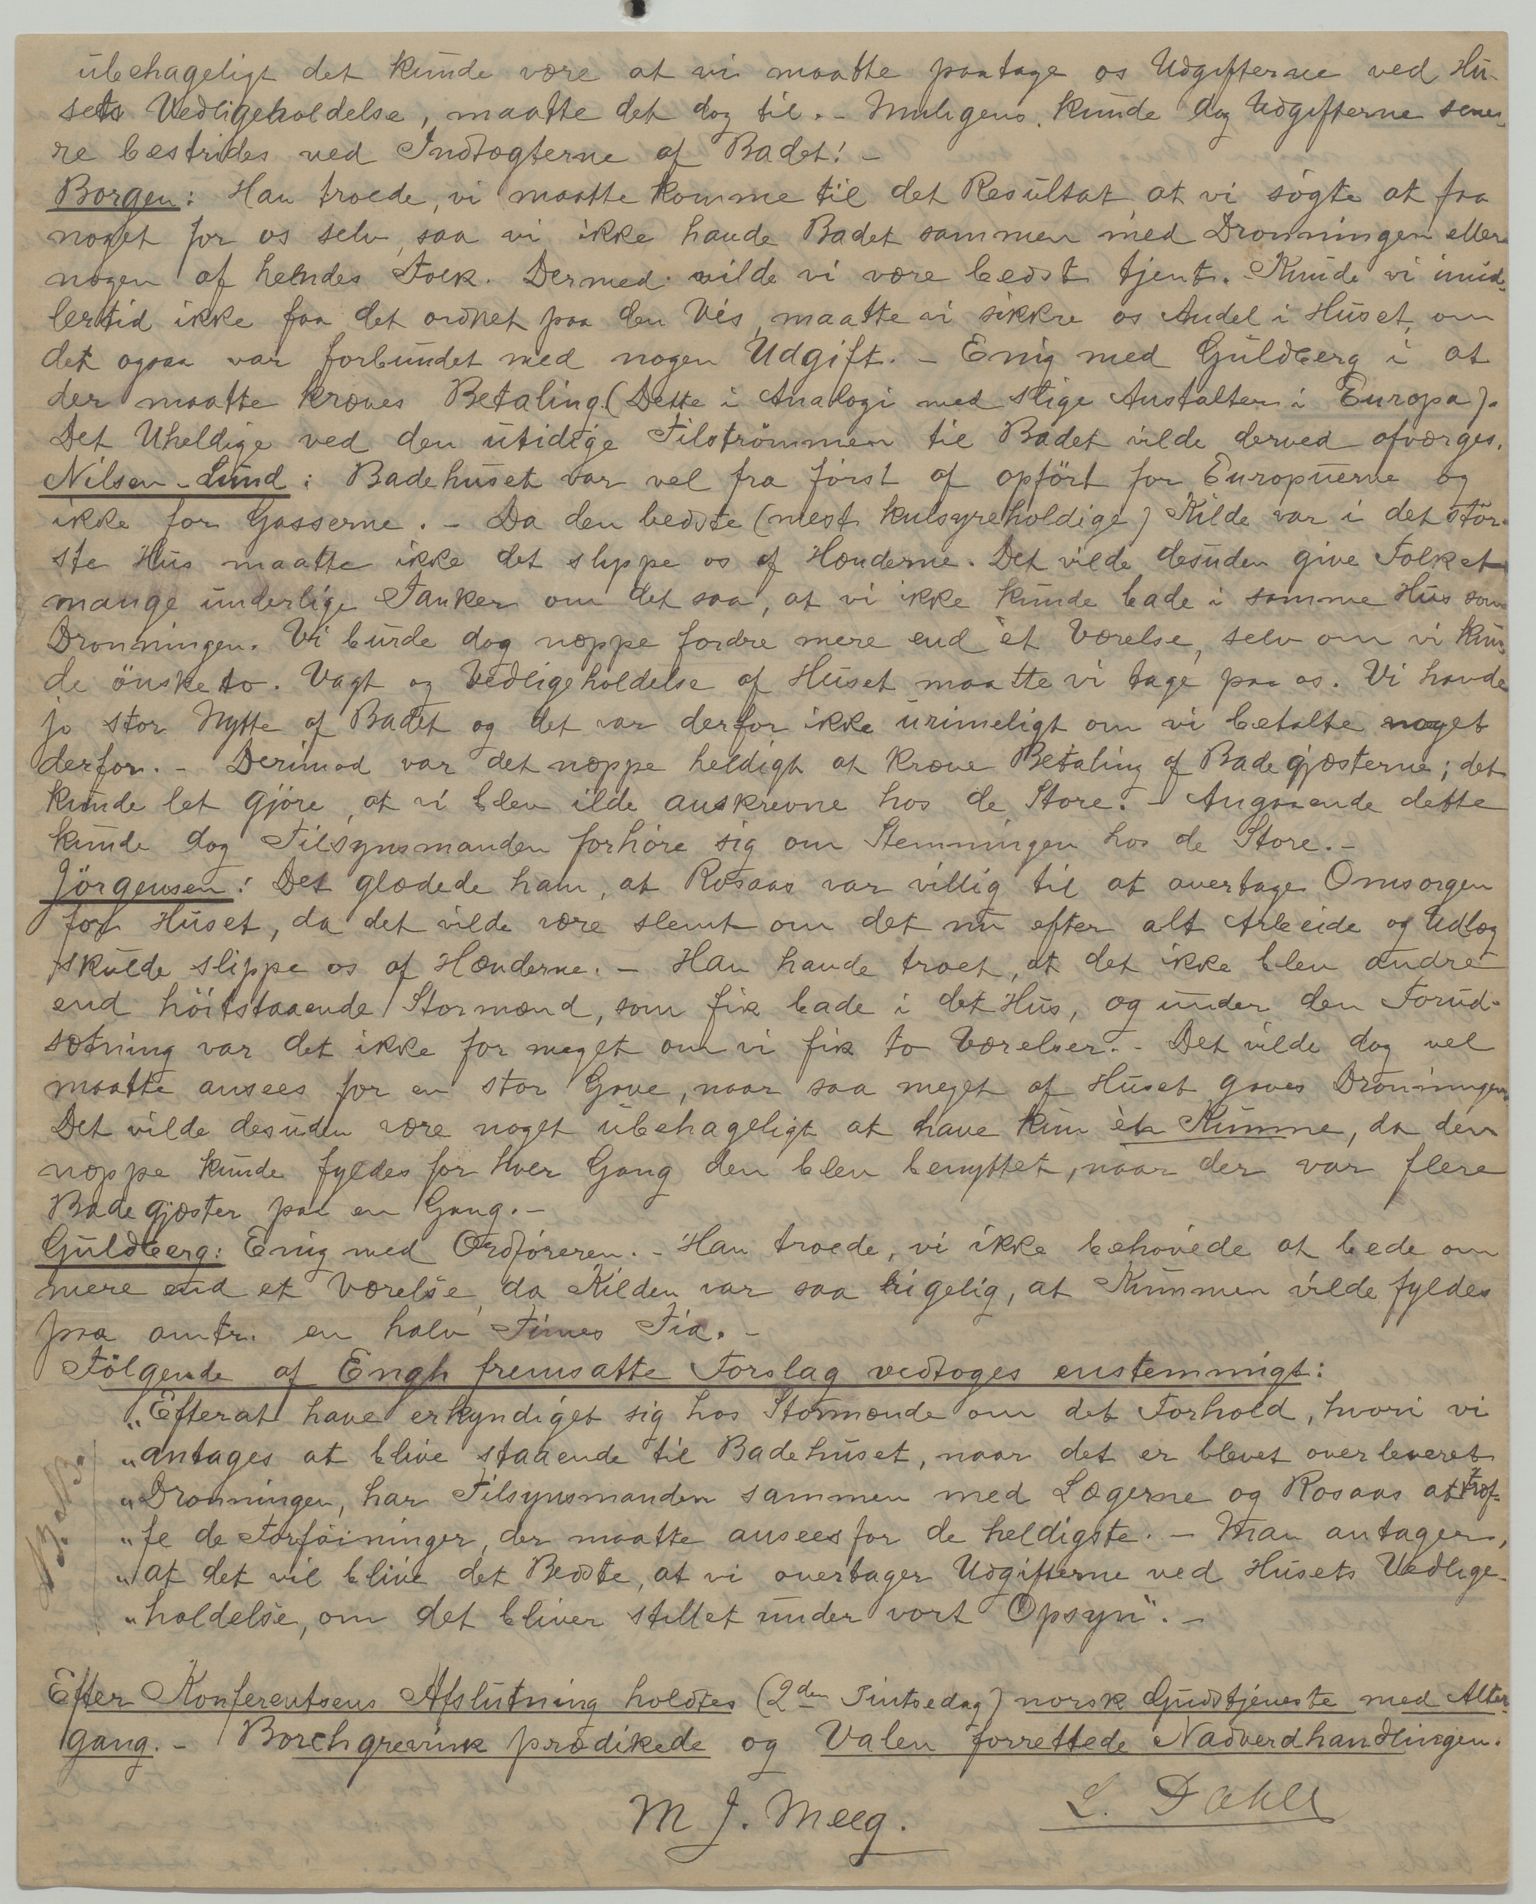 ubehageligt det kunde være at vi maatte paatage os Udgifterne ved Hu-
sets Vedligeholdelse, maatte det dog til. - Muligens kunde dog Udgifterne sene-
re bestrides ved Indtægterne af Badet! -
Borgen: Han troede, vi maatte komme til det Resultat at vi søgte at faa
noget for os selv, saa vi ikke havde Badet sammen med Dronningen eller
nogen af hendes Folk. Dermed vilde vi være bedst tjent. Kunde vi imid-
lertid ikke faa det ordnet paa den Vis, maatte vi sikkre os Andel i Huset, om
det ogsaa var forbundet med nogen Udgift. - Enig med Guldberg i, at
der maatte kræves Betaling. (Dette i Analogi med slige Anstalter i Europa).
Det Uheldige ved den utidige Tilströmmen til Badet vilde derved afværges.
Nilsen-Lund: Badehuset var vel fra først af opfört for Europæerne og
ikke for Gasserne. - Da den bedste (mest kulsyreholdige) Kilde var i det stör-
ste Hus maatte ikke det slippe os af Hænderne. Det vilde desuden give Folket
mange underlige Tanker om det saa, at vi ikke kunde bade i samme Hus som
Dronningen. Vi burde dog neppe fordre mere end èt Værelse, selv om vi kun-
de önske to. Vagt og Vedligeholdelse af Huset maatte vi tage paa os. Vi havde
jo stor Nytte af Badet og det var derfor ikke urimeligt om vi betalte noget
derfor. - Derimod var det næppe heldigt at kræve Betaling af Badegjæsterne; det
kunde let gjöre, at vi blev ilde anskrevne hos de Store. - Angaaende dette
kunde dog Tilsynsmanden forhöre sig om Stemningen hos de Store. -
Jörgensen: Det glædede ham, at Rosaas var villig til at overtage Omsorgen
for Huset, da det vilde være slemt om det nu efter alt Arbeide og Udlæg
skulde slippe os af Hænderne. - Han havde troet, at det ikke blev andre
end höitstaaende Stormænd, som fik bade i det Hus, og under den Forud-
sætning var det ikke for meget om vi fik to Værelser. - Det vilde dog vel
maatte ansees for en stor Gave, naar saa meget af Huset gaves Dronningen.
Det vilde desuden være noget ubehageligt at have kun èn Kumme, da den
næppe kunde fyldes for hver Gang den blev benyttet, naar der var flere
Badegjæster paa en Gang. -
Guldberg: Enig med Ordføreren. - Han troede, vi ikke behövede at bede om
mere end et Værelse, da Kilden var saa rigelig, at Kummen vilde fyldes
paa omtr. en halv Times Tid. -
Fölgende af Engh fremsatte Forslag vedtoges enstemmigt:
"Efterat have erkyndiget sig hos Stormænde om det Forhold, hvori vi
"antages at blive staaende til Badehuset, naar det er blevet overleveret
"Dronningen, har Tilsynsmanden sammen med Lægerne og Rosaas at træf-
"fe de Forföininger, der maatte ansees for de heldigste. - Man antager,
"at det vil blive det Bedste, at vi overtager Udgifterne ved Husets Vedlige-
"holdelse, om det bliver stillet under vort Opsyn". -
Efter Konferentsens Afslutning holdtes (2den Pintsedag) norsk Gudstjeneste med Alter-
gang. - Borchgrevink prædikede og Valen forrettede Nadverdhandlingen.
M J. Meeg.
L. Dahle